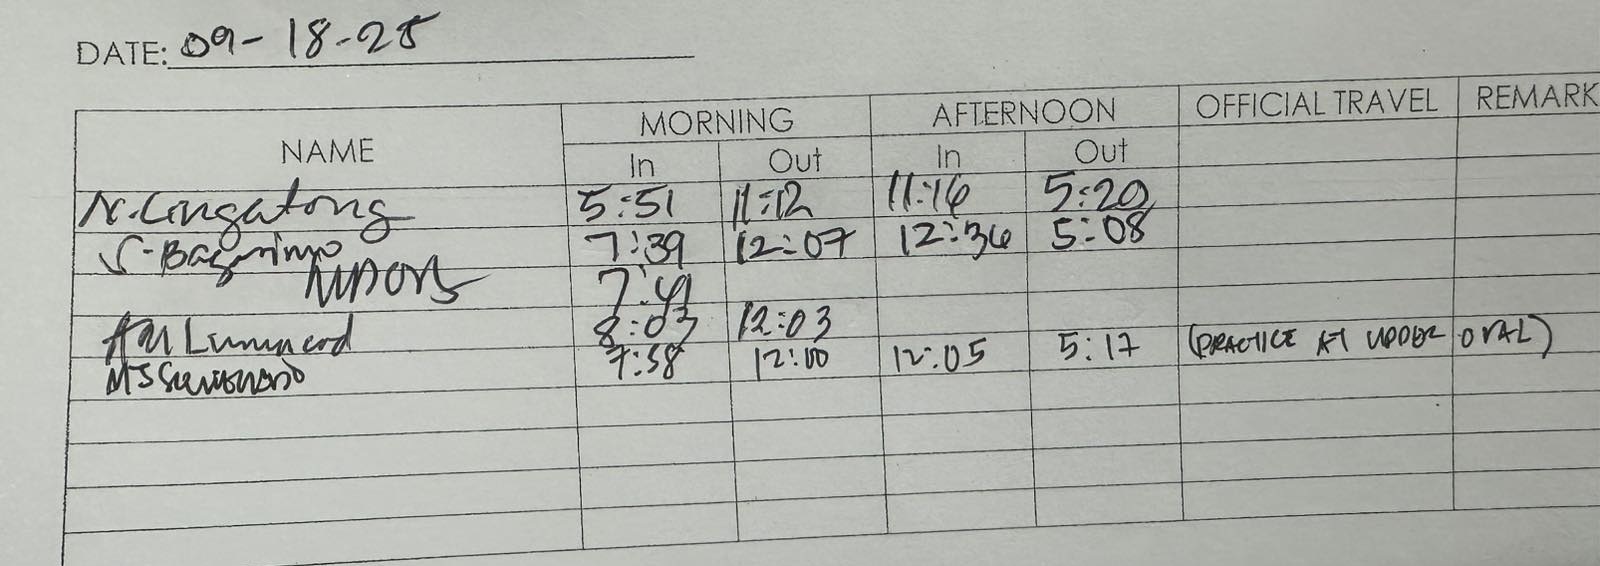 DATE: 09-18-25
NAME MORNING AFTERNOON OFFICIAL TRAVEL REMARK
In Out In Out
N. Lingatong 5:51 11:12 11:16 5:20
S. Bagarino 7:39 12:07 12:36 5:08
7:41
AM 8:03 12:03
MJ 7:58 12:00 12:05 5:17 (PRACTICE AT UPPER OVAL)